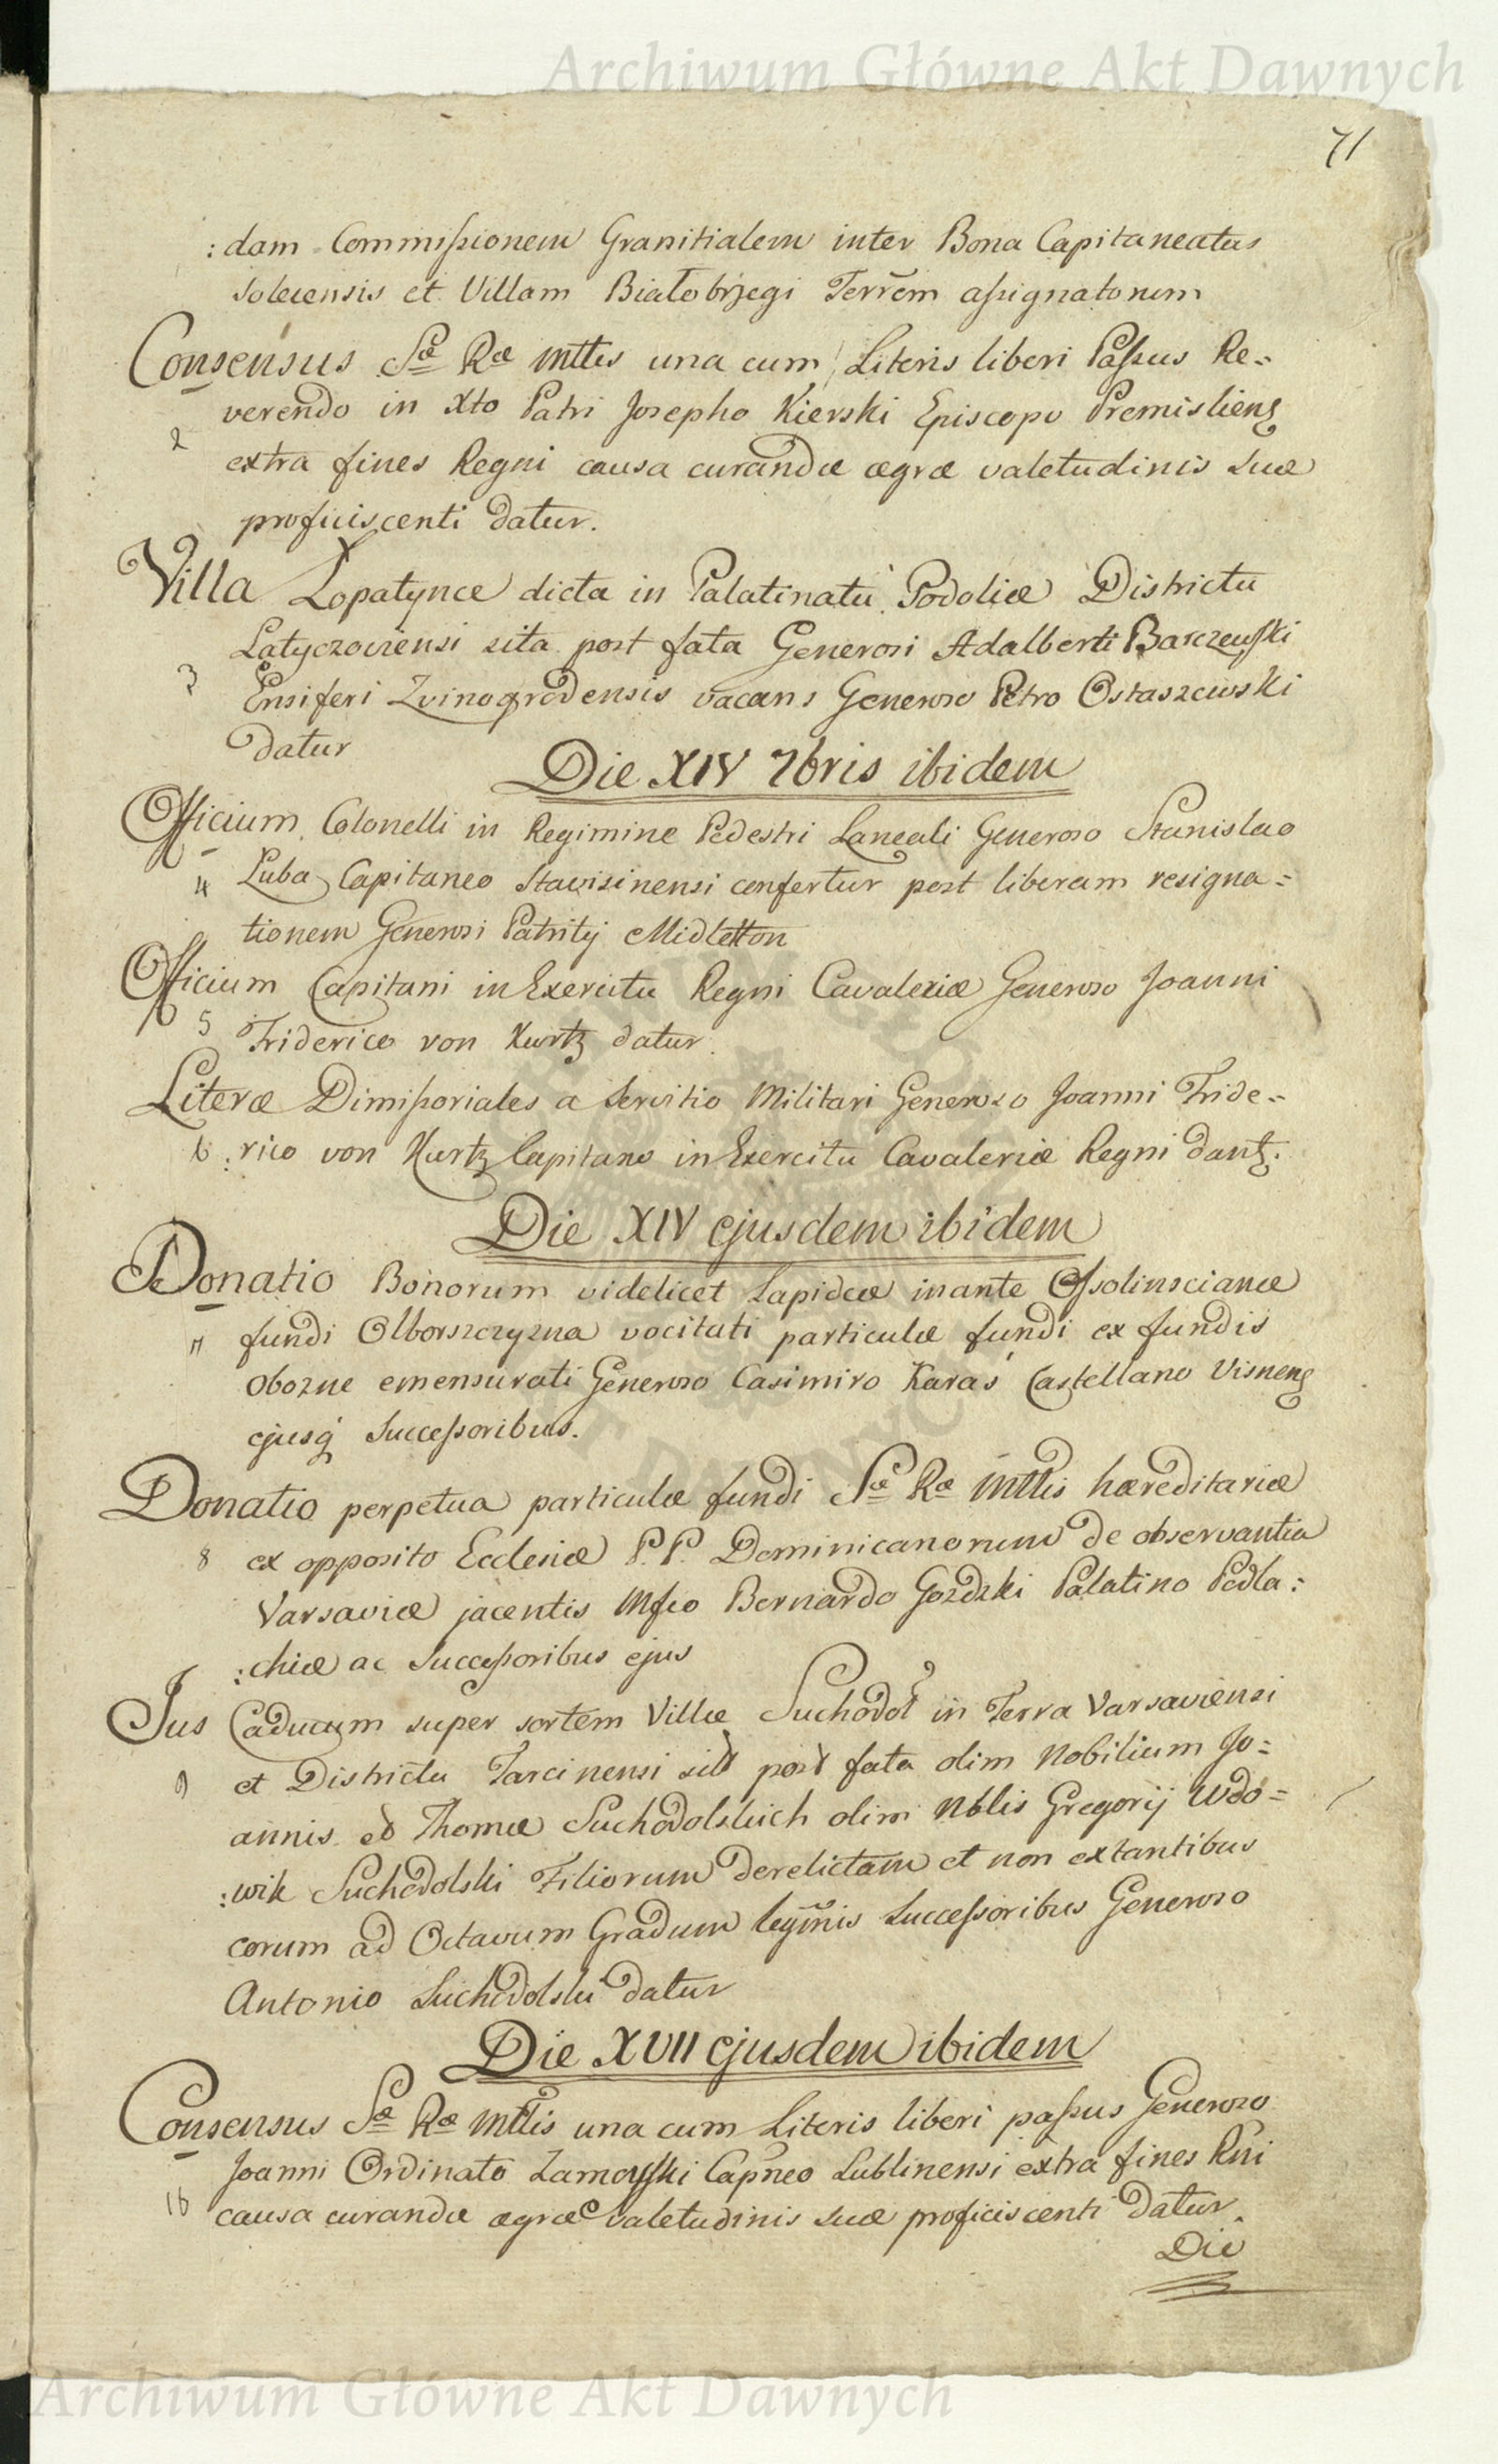 Archiwum Główne Akt Dawnych
71
:dam Commissionem Granitialem inter Bona Capitaneatus
Solecensis et Villam Białobrzegi Terrēm assignatorum
Consensus Sæ Ræ Mttis una cum Literis liberi Passus Re=
verendo in Xto Patri Josepho Kierski Episcopo Premisliens
2
extra fines Regni causa curandæ ægræ valetudinis suæ
proficiscenti datur.
Villa Łopatynce dicta in Palatinatu Podoliæ Districtu
Latyczoviensi sita post fata Generosi Adalberti Barczewski
3
Ensiferi Zvinogrodensis vacans Generoso Petro Ostaszewski
datur
Die XIV 7bris ibidem
Officium Colonelli in Regimine Pedestri Laneali Generoso Stanislao
4 Luba Capitaneo Stavisinensi confertur post liberam resigna=
tionem Generosi Patritij Midletton
Officium Capitani in Exercitu Regni Cavaleriæ Generoso Joanni
5 Friderico von Kurtz datur.
Literæ Dimissoriales a Servitio Militari Generoso Joanni Fride=
6 :rico von Kurtz Capitano in Exercitu Cavaleriæ Regni dant.
Die XIV ejusdem ibidem
Donatio Bonorum videlicet Lapideæ inante Ossolinscianæ
7 fundi Olborszczyzna vocitati particulæ fundi ex fundis
obozne emensurati Generoso Casimiro Karaś Castellano Visnens
ejusq́ Successoribus.
Donatio perpetua particulæ fundi Sæ Ræ Mttis hæreditariæ
8 ex opposito Ecclesiæ P.P. Dominicanorum de observantia
Varsaviæ jacentis Mfco Bernardo Gozdzki Palatino Podla:
:chiæ ac Successoribus ejus
Jus Caducum super sortem Villæ Suchodoł in Terra Varsaviensi
9 et Districtu Tarcinensi post fata olim Nobilium Jo=
annis et Thomæ Suchodolskich olim Nblis Gregorij Wdo=
:wik Suchodolski Filiorum derelictam et non extantibus
eorum ad Octavum Gradum legm̃is Successoribus Generoso
Antonio Suchodolski datur
Die XVII ejusdem ibidem
Consensus Sæ Ræ Mttis una cum Literis liberi passus Generoso
Joanni Ordinato Zamoyski Capneo Lublinensi extra fines Rni
10 causa curandæ ægræ valetudinis suæ proficiscenti datur.
Die
Archiwum Główne Akt Dawnych